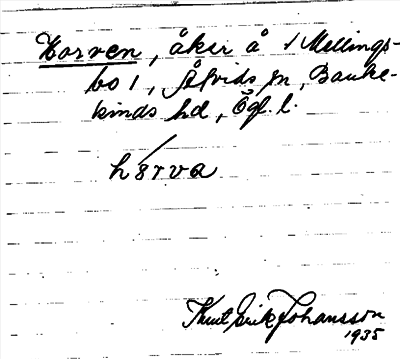 Horven, åker å 1 Mellings-
bo 1, Åtvids sn, Banke-
kinds hd, Ögl. l.
hɜrva
Knut Erik Johansson
1935